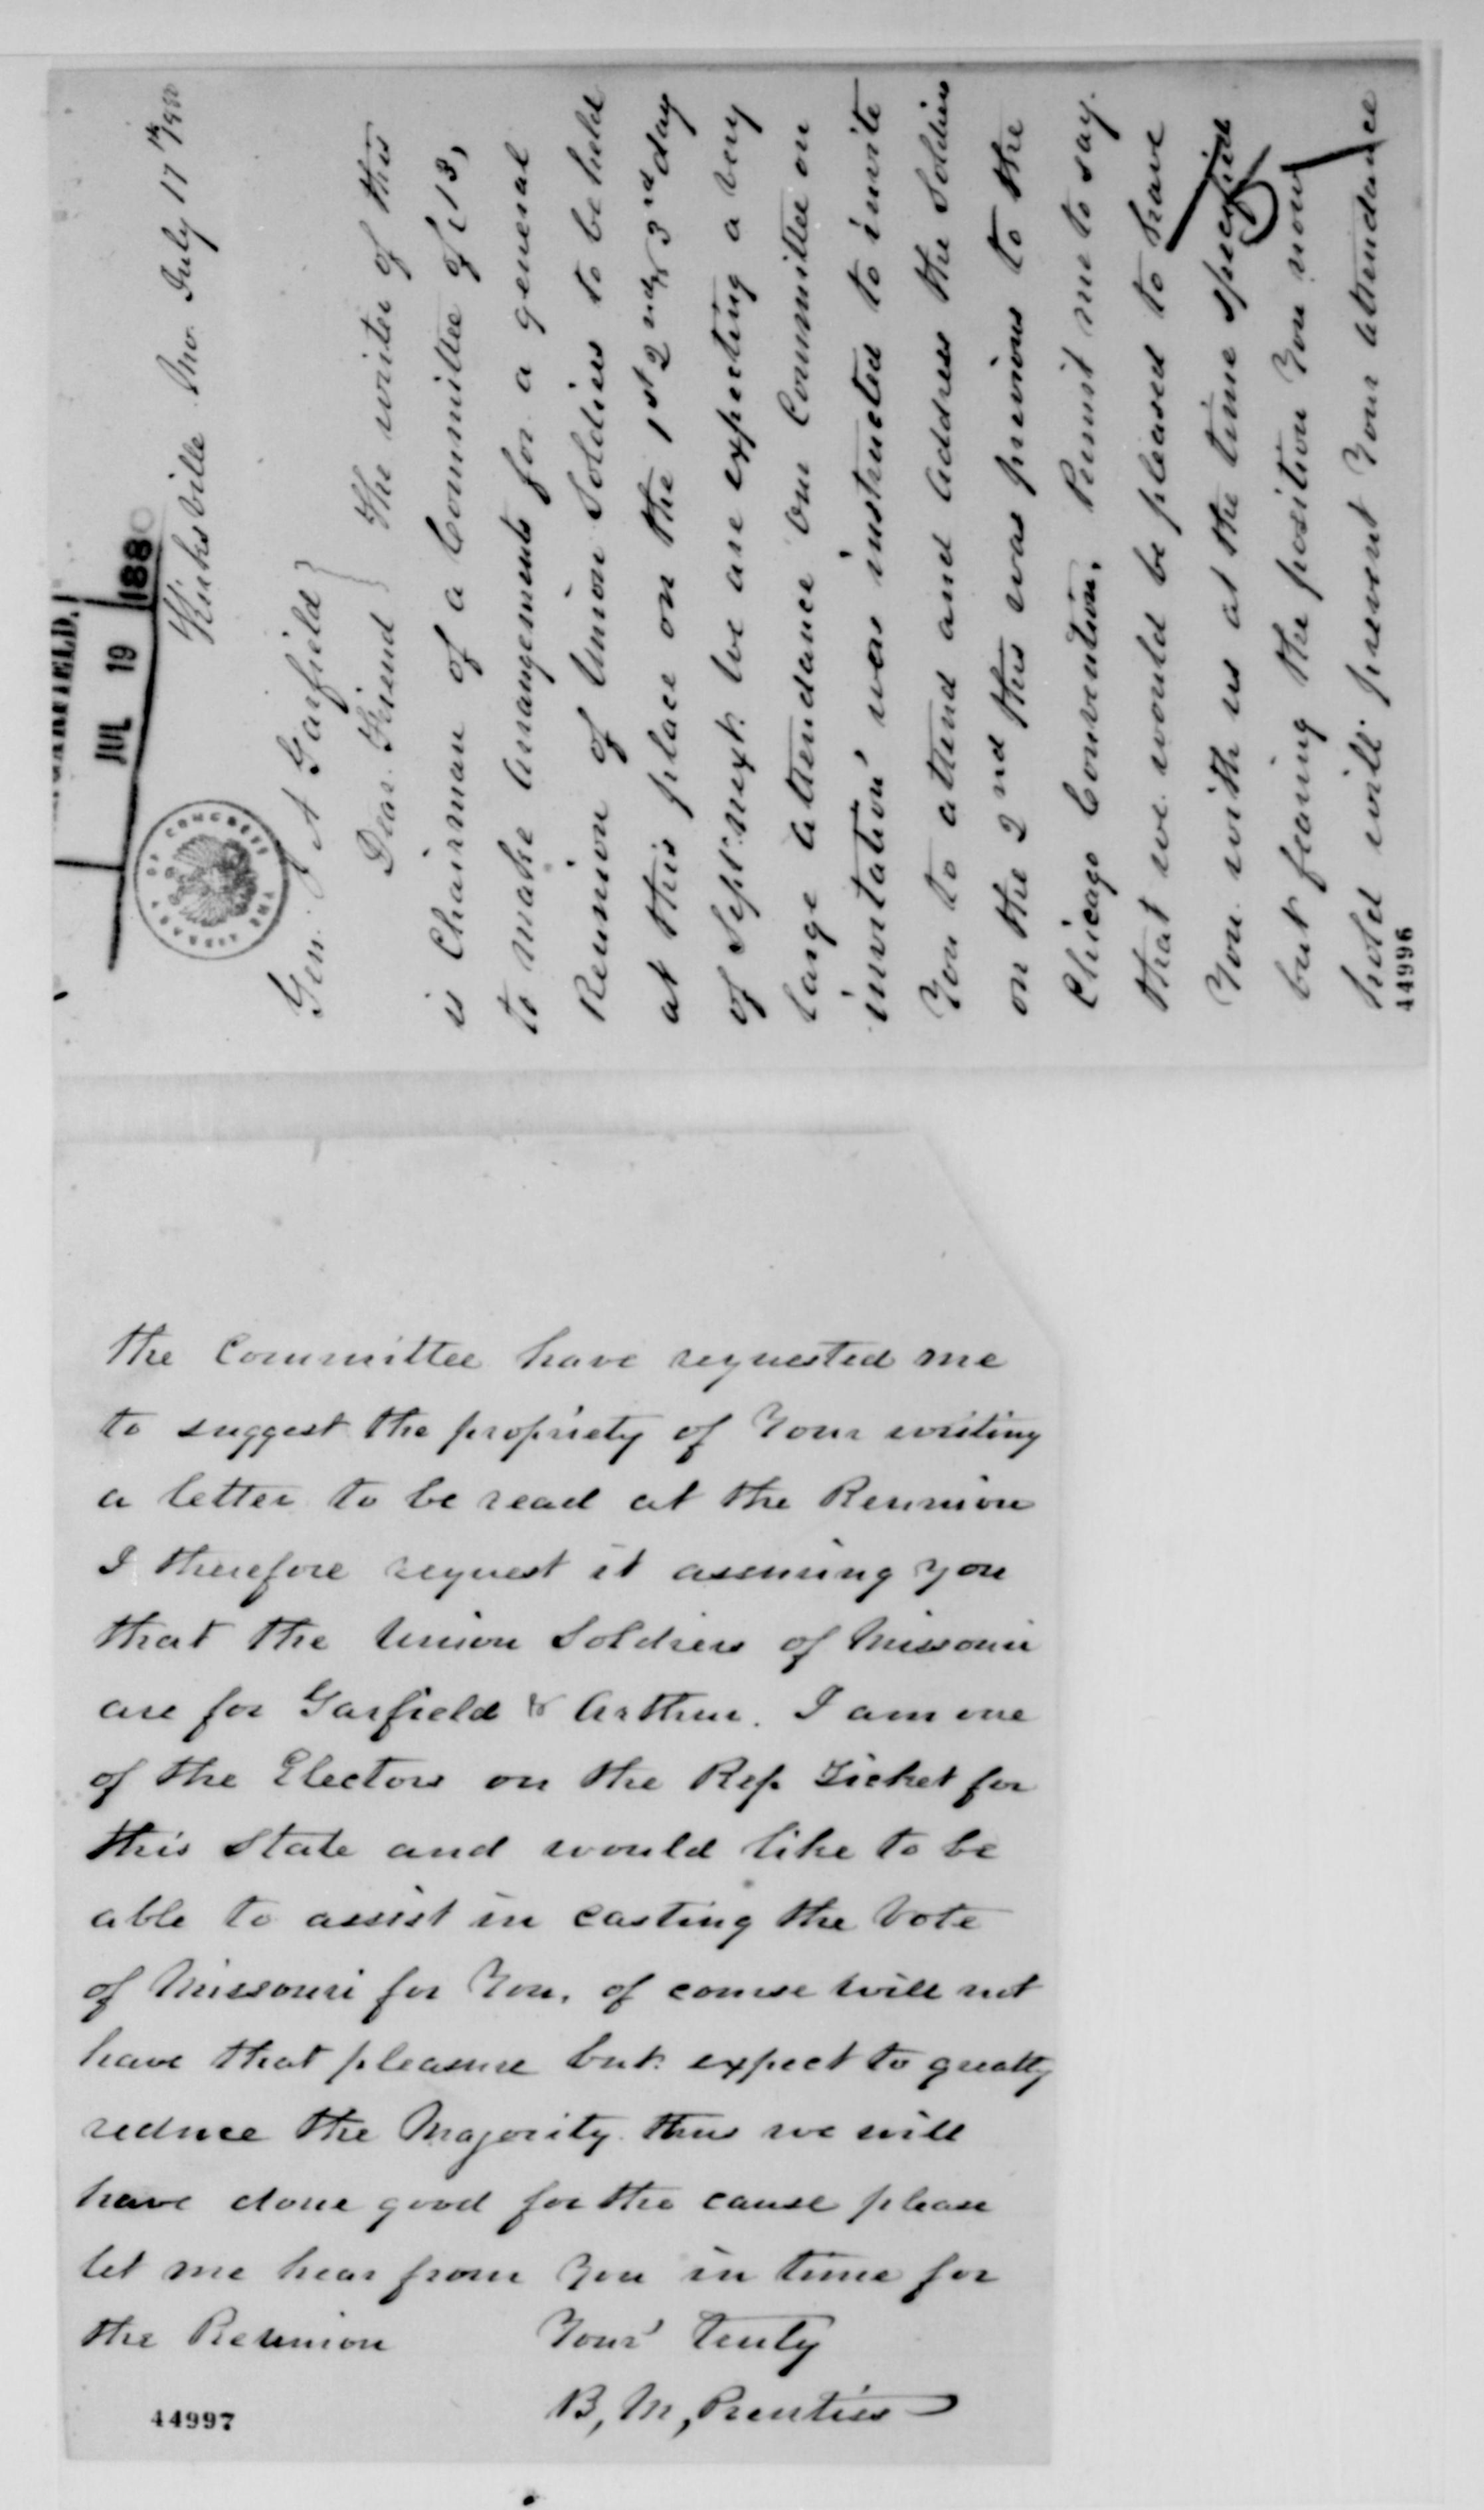 GARFIELD.
JUL 19 1880
Kirksville Mo. July 17th/880
Gen. J A Garfield }
Dear Friend } The writer of this
is Chairman of a Committee of 13,
to make Arrangements for a general
Reunion of Union Soldiers to be held
at this place on the 1st 2nd & 3rd day
of Sept. next. we are expecting a very
large attendance our Committee on
invitation was instructed to invite
You to attend and address the Soldiers
on the 2nd this was previous to the
Chicago Convention. Permit me to say.
that we would be pleased to have
You with us at the time specified
but fearing the position You now
hold will prevent Your attendance
44996
THE LIBRARY OF CONGRESS
the Committee have requested me
to suggest the propriety of Your writing
a letter to be read at the Reunion
I therefore request it assuring you
that the Union Soldiers of Missouri
are for Garfield & Arthur. I am one
of the Electors on the Rep Ticket for
this State and would like to be
able to assist in casting the Vote
of Missouri for You, of course will not
have that pleasure but expect to greatly
reduce the Majority thus we will
have done good for the cause please
let me hear from You in time for
the Reunion Your' Truly
B, M, Prentiss
44997